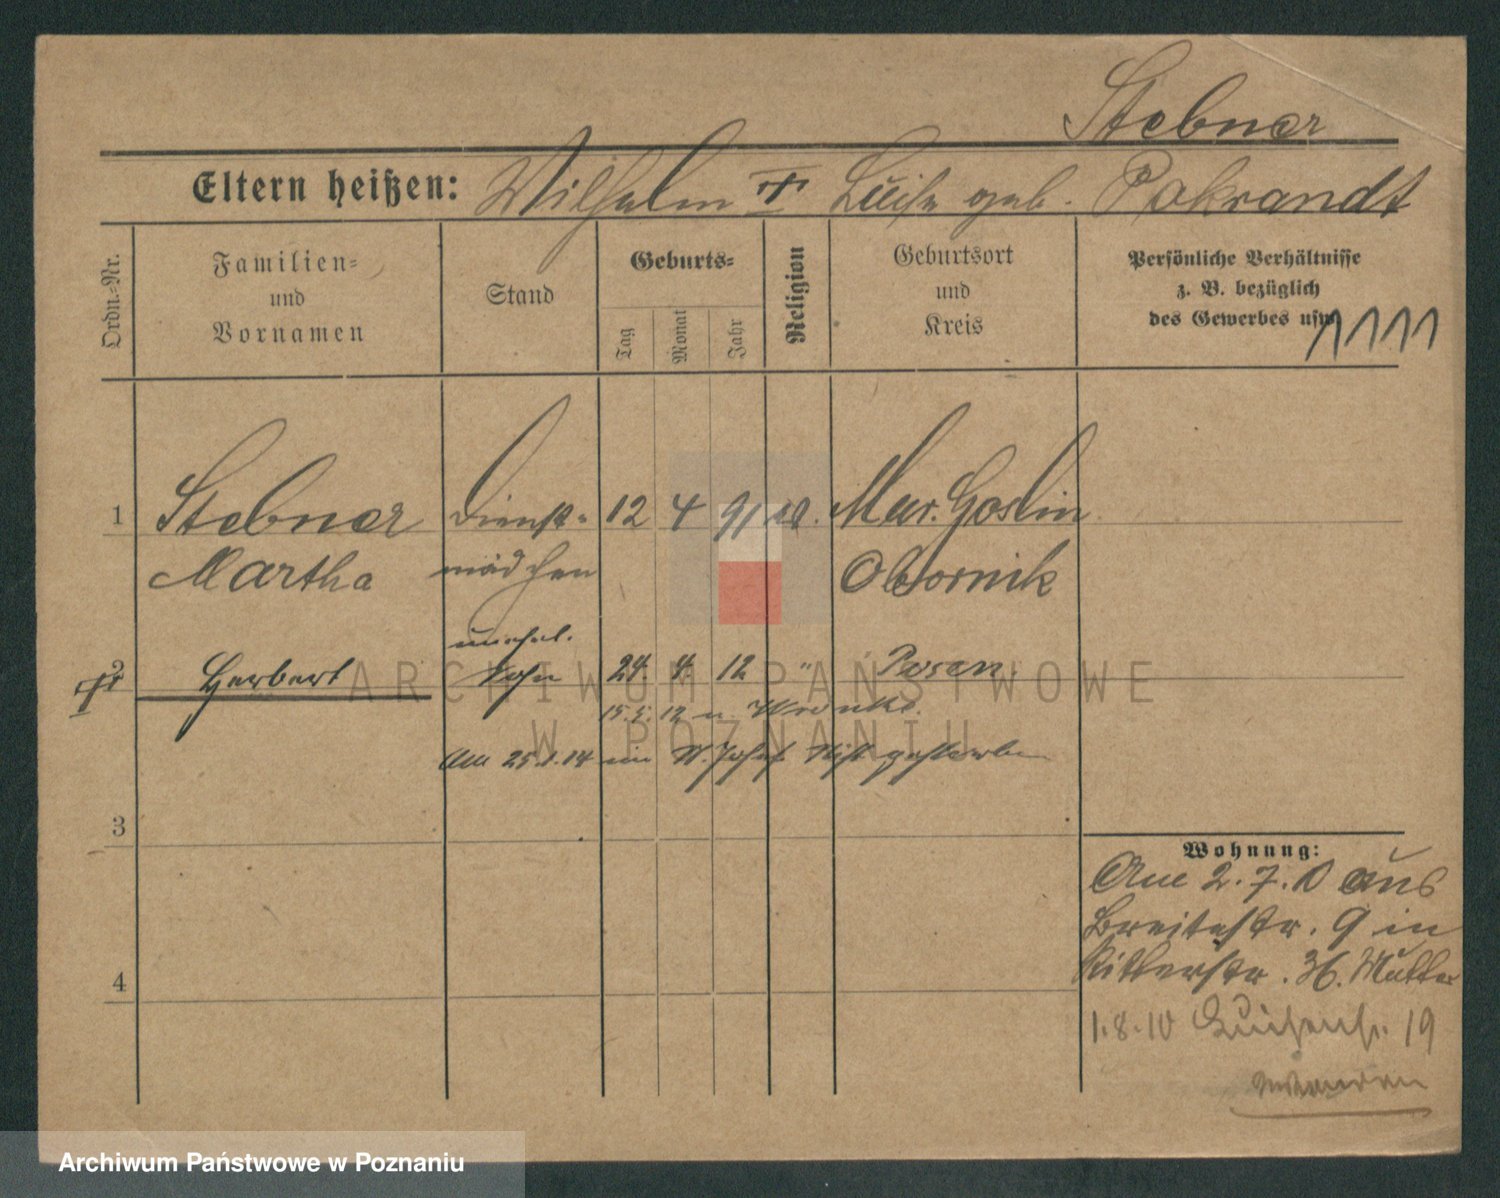 Stebner
Eltern heißen: Wilhelm † Luise geb. Pokrandt
Ordn.-Nr.
Familien-
und
Vornamen
Stand
Geburts-
Tag
Monat
Jahr
Religion
Geburtsort
und
Kreis
Persönliche Verhältnisse
z. B. bezüglich
des Gewerbes usw.
1111
1 Stebner Dienst- 12 4 91 Mur. Goslin
Martha mädchen Obornik
unehel.
2 Herbert Sohn 24. 4. 12 " Posen
15. 5. 12 n. Wronke.
Am 25.1.14 im St. Josef Stift gestorben
3
4
Wohnung:
Am 2.7.10 aus
Breitestr. 9 in
Ritterstr. 36. Mutter
1.8.10 Luisenstr. 19
ARCHIWUM PAŃSTWOWE
W POZNANIU
Archiwum Państwowe w Poznaniu